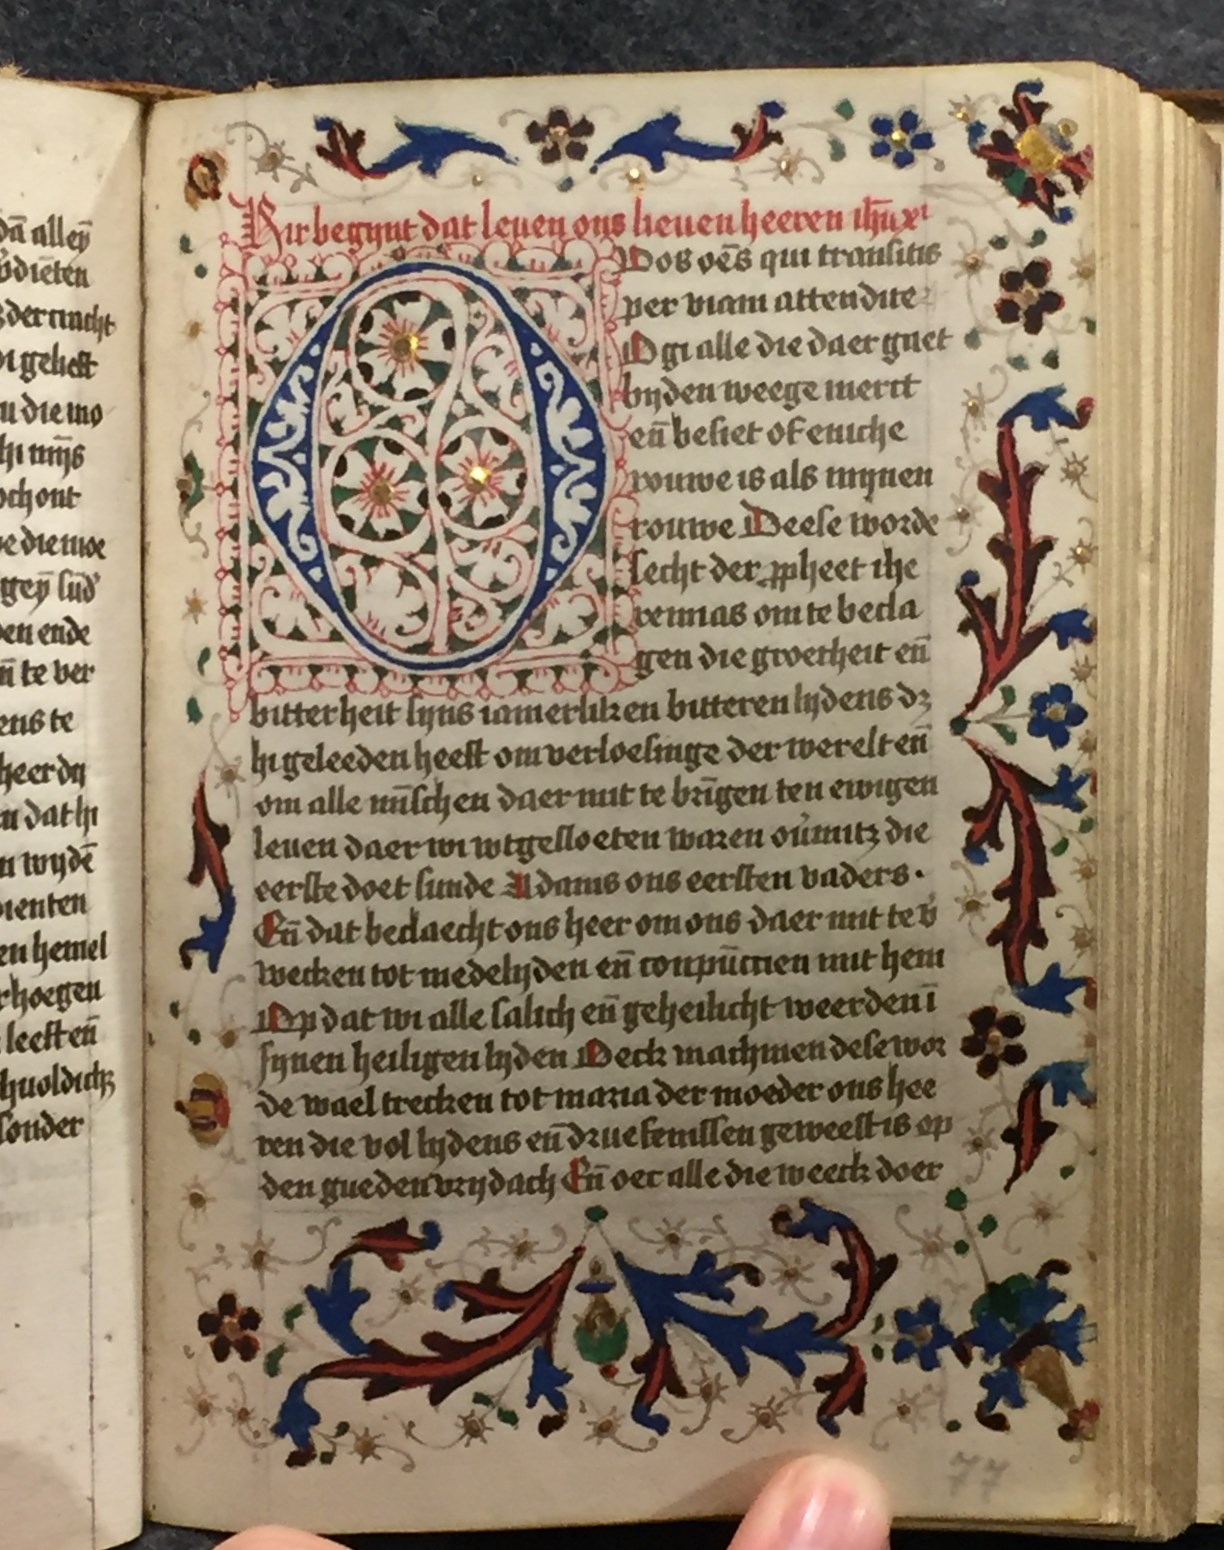 dā alleȳ
diēten
der macht
i gelieft
n die mo
hi mīs
och ont
e die moe
geȳ sūd
en ende
n̄ te ver
ens te
heer dy
n dat hi
n wydē
ienten
en hemel
rhoegen
leeft en̄
huoldich
sonder
Hir begynt dat leuen ons lieuen heeren ihū xp̄i
O Vos oēs qui transitis
per viam attendite
O gi alle die daer gaet
byden weege merct
en̄ besiet of eniche
rouwe is als mynen
rouwe Deese worde
secht der ꝓpheet ihe
remias om te becla
gen die groetheit en̄
bitterheit syns iamerliken bitteren lydens dz
hi geleeden heeft om verloesinge der werelt en̄
om alle mīschen daer mit te brīgen ten ewigen
leuen daer wi wtgesloeten waren ouīmitz die
eerste doet sunde Adams ons eersten vaders ·
En̄ dat beclaecht ons heer om ons daer mit te v̄
wecken tot medelyden en̄ conpūctien mit hem
Op dat wi alle salich en̄ geheilicht weerden ī
synen heiligen lyden Oeck machmen dese wor
de wael trecken tot maria der moeder ons hee
ren die vol lydens en̄ druefenissen geweest is op
den gueden vrydach En̄ oec alle die weeck doer
77